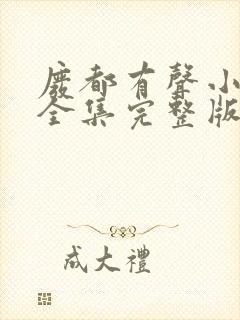 廢都有聲小
全集完整版
成大禮